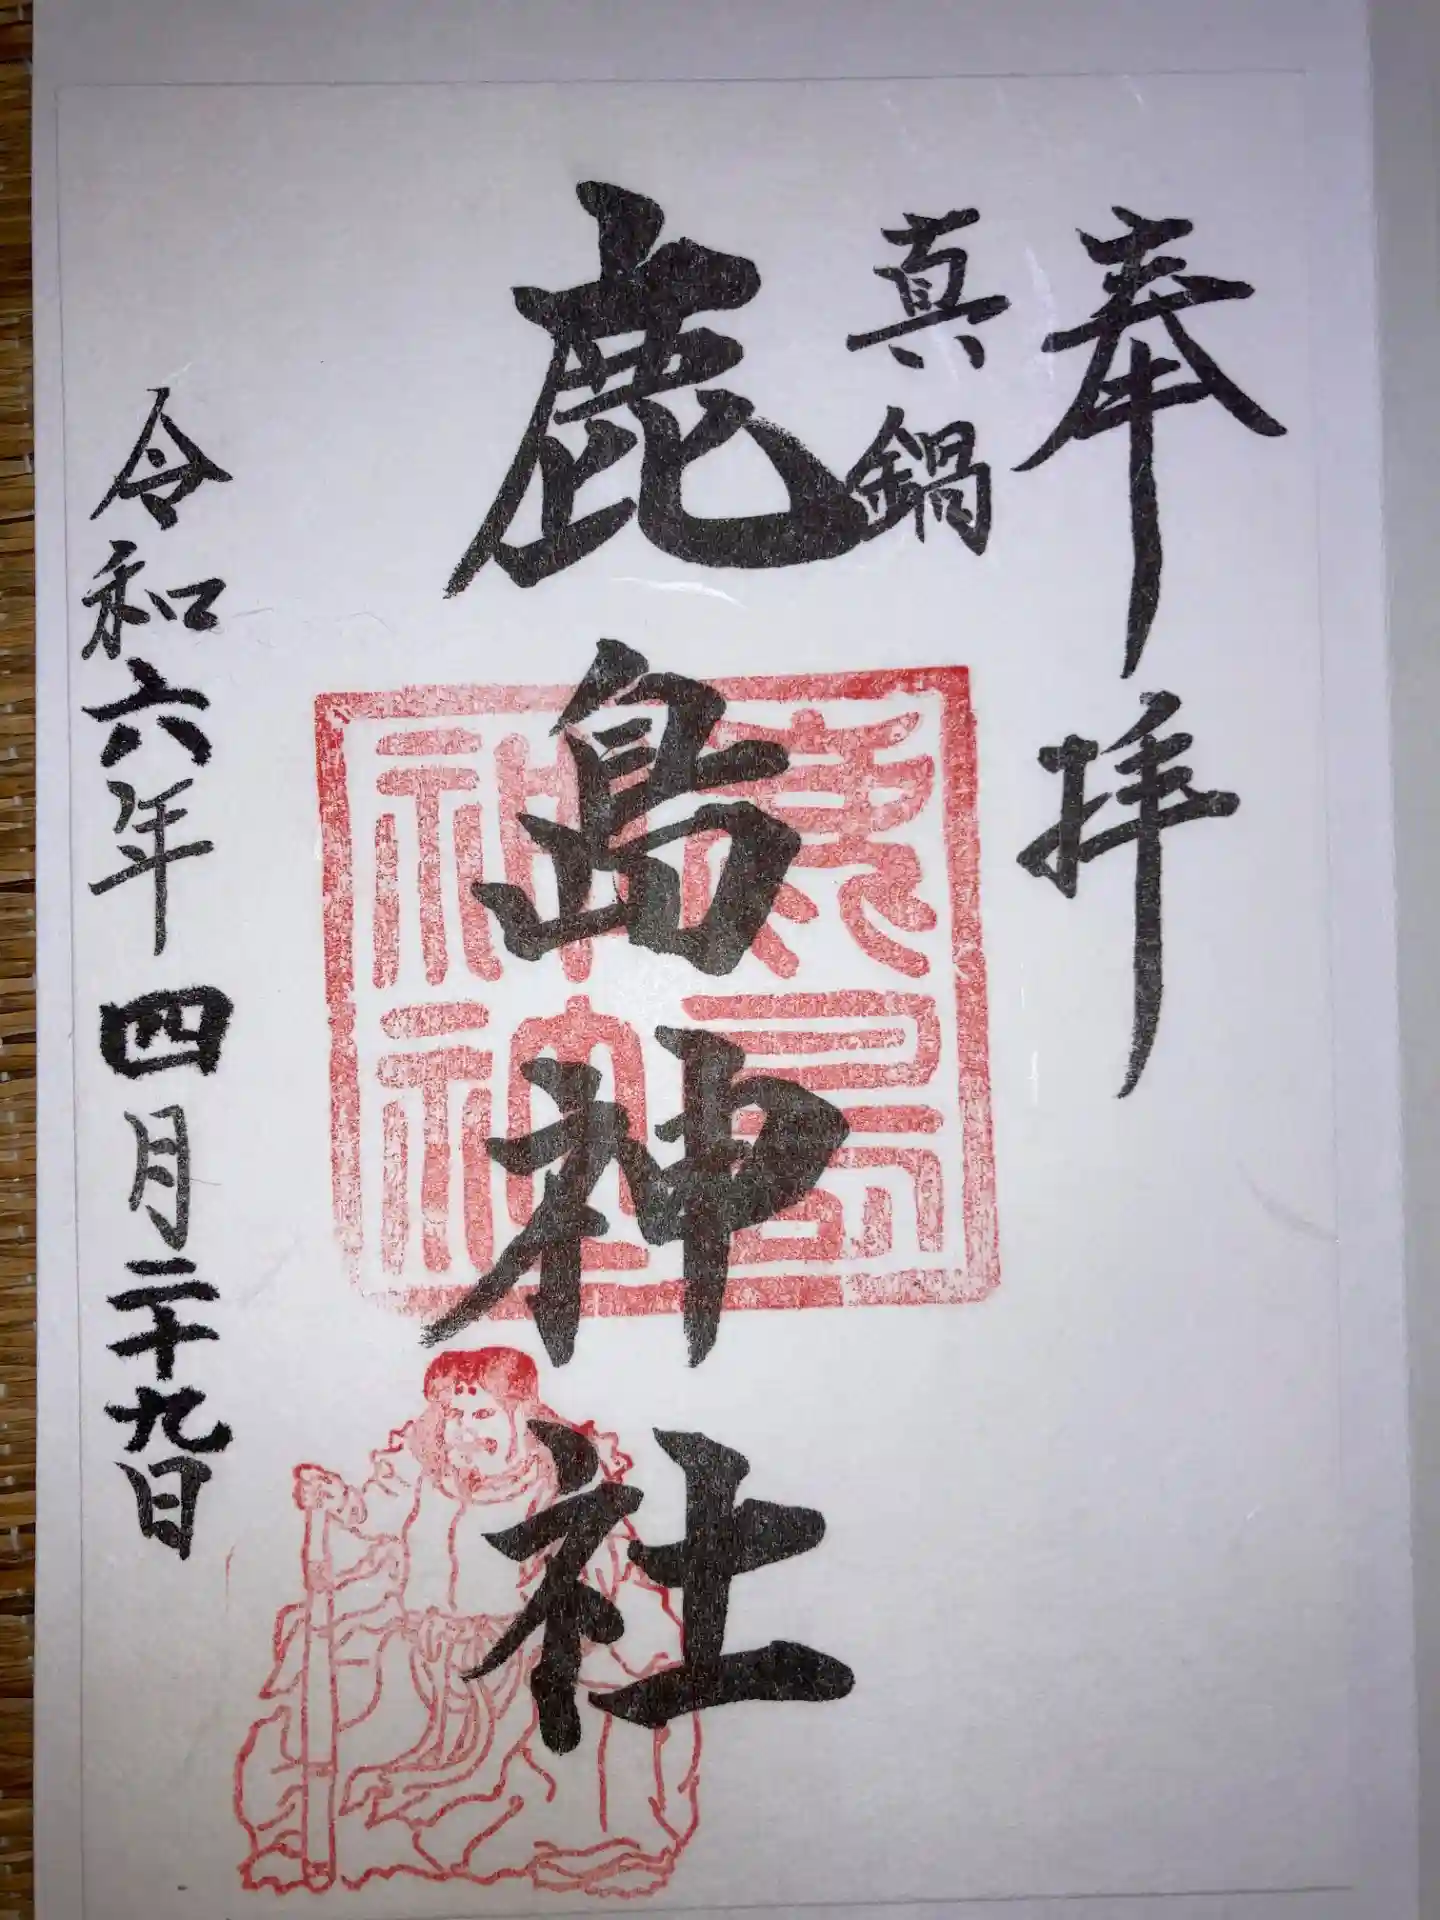 奉拝
真鍋
鹿島神社
鹿島神社
令和六年四月二十九日